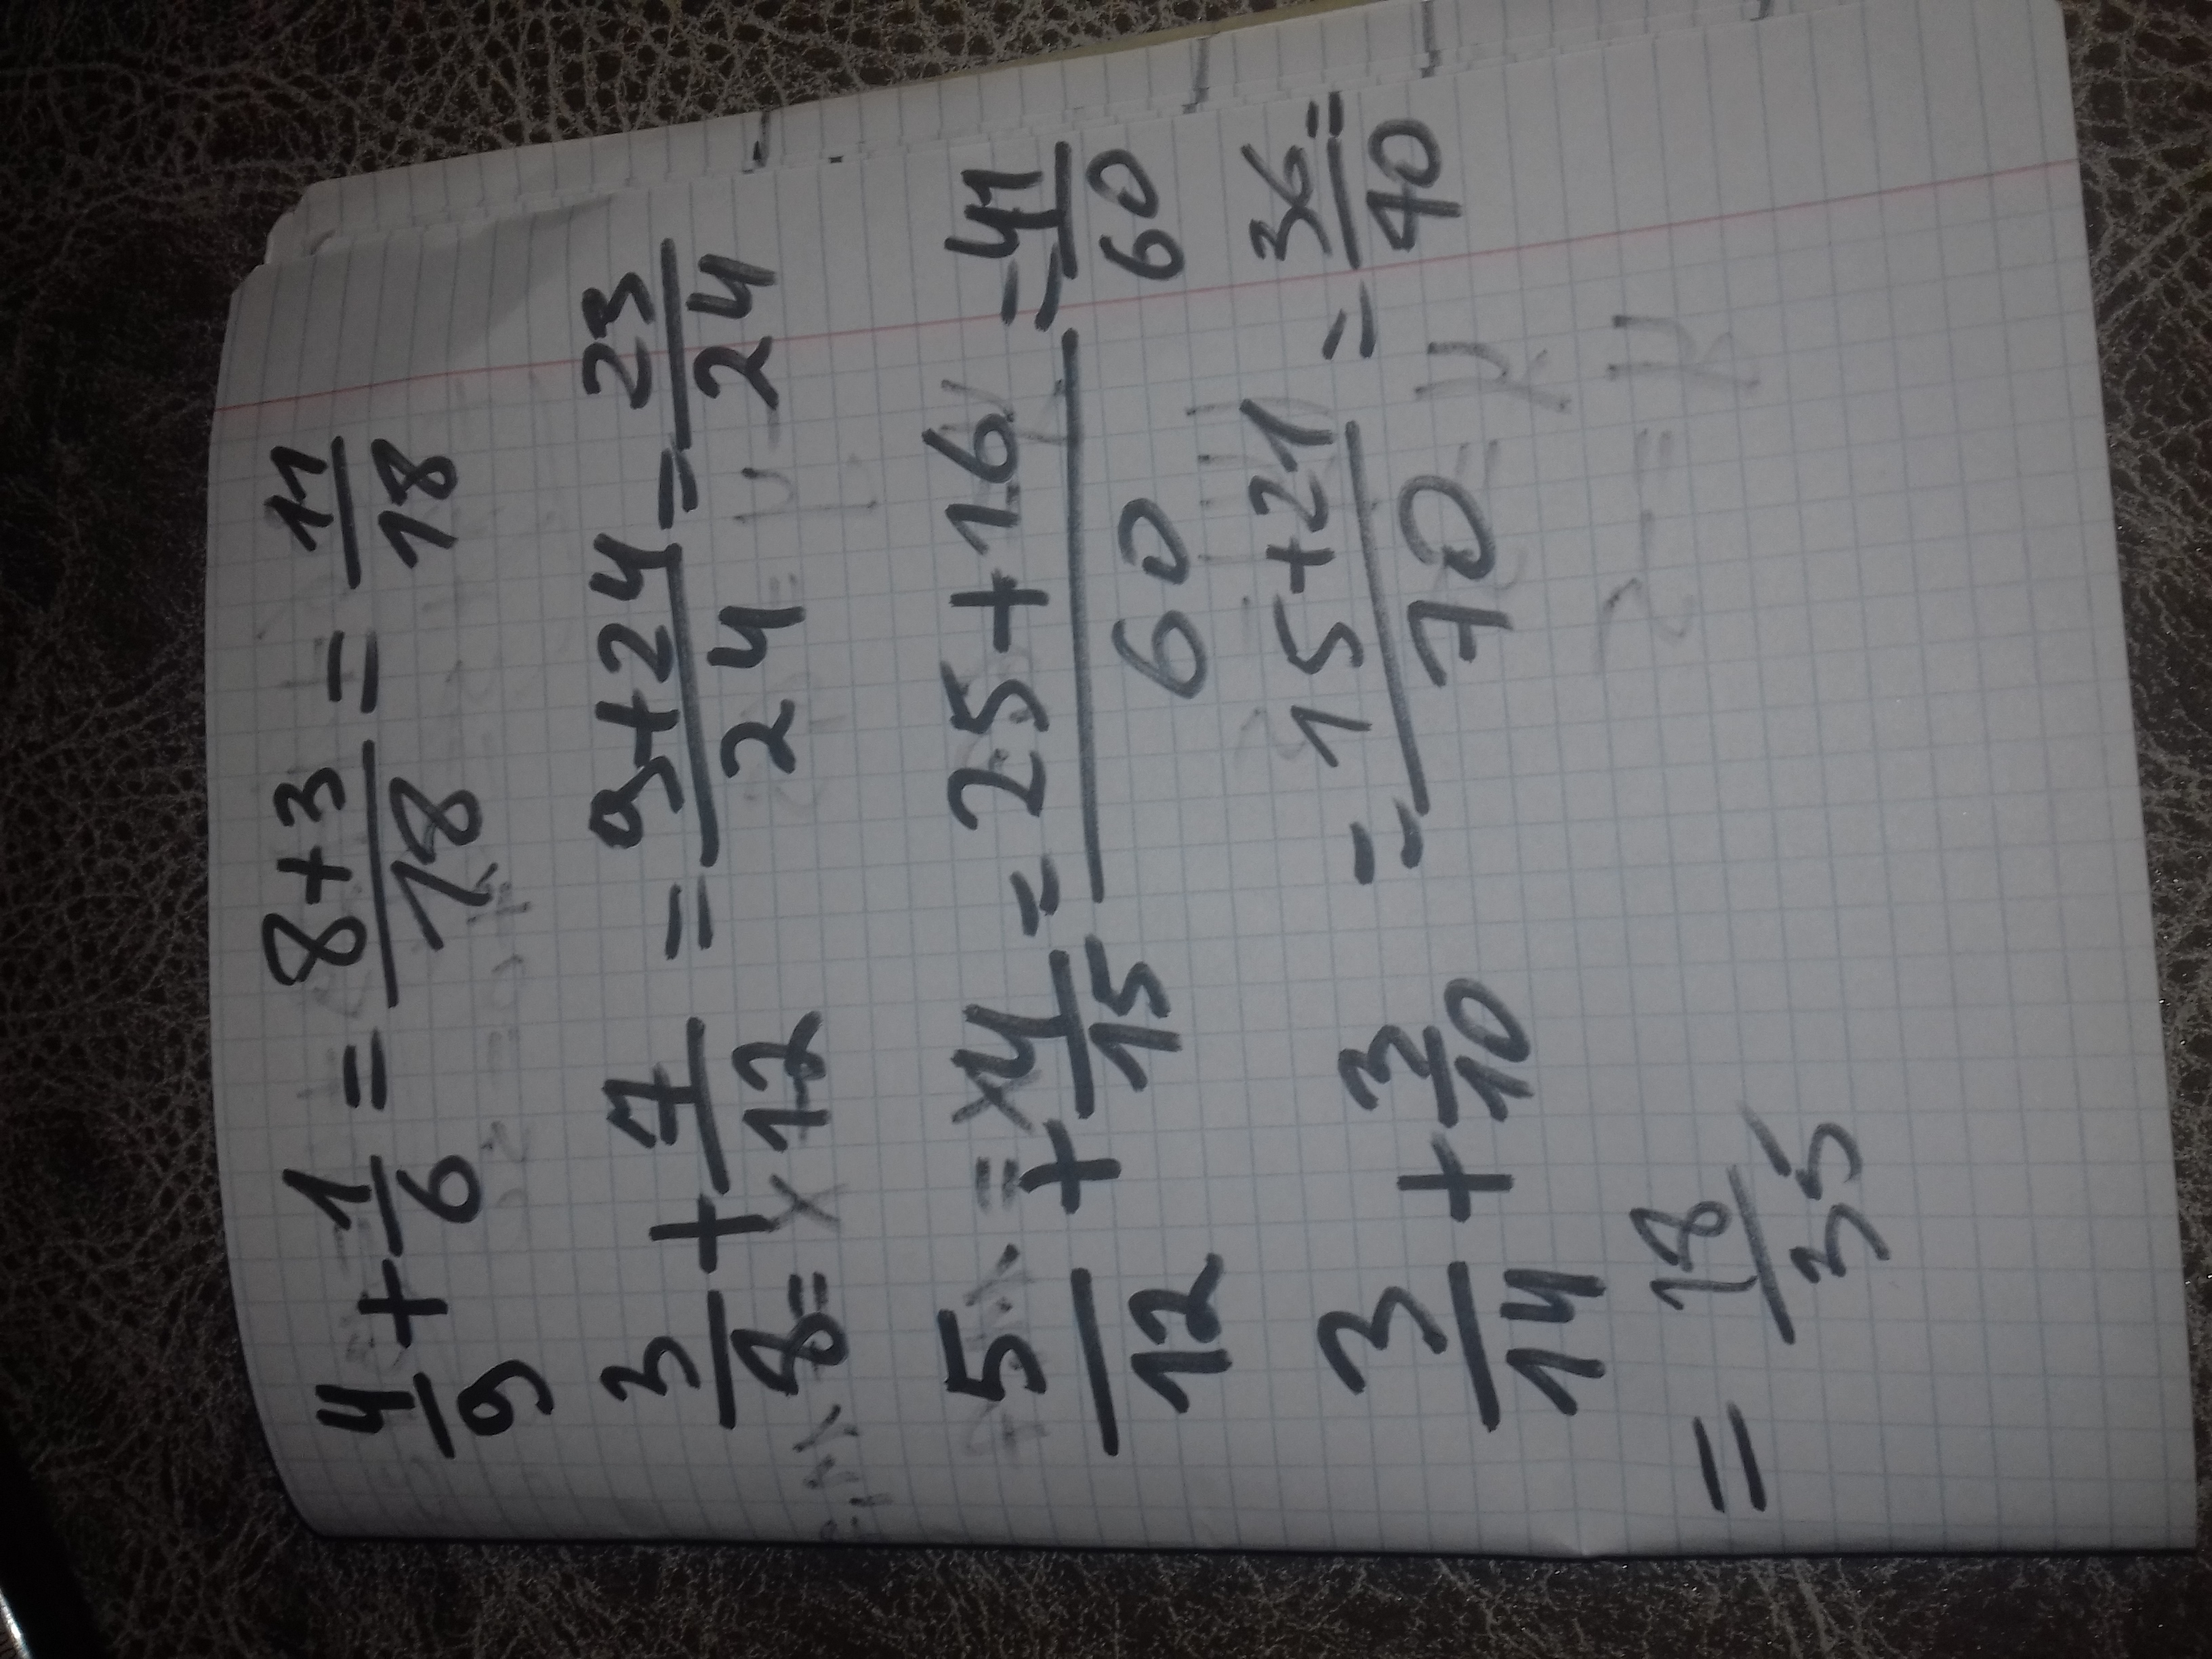 4/9 + 1/6 = 8+3/18 = 11/18
3/8 + 7/12 = 9+24/24 = 23/24
5/12 + 4/15 = 25+16/60 = 41/60
3/14 + 3/10 = 15+21/70 = 36/40 =
= 18/35